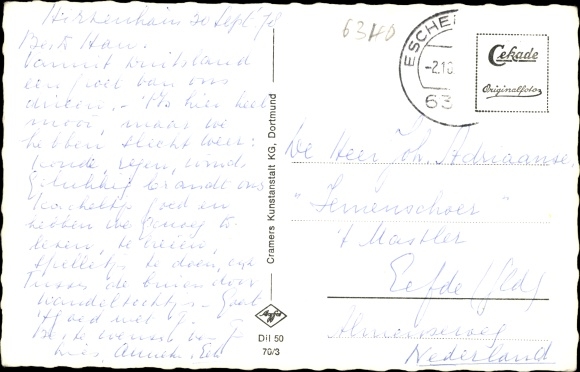 Hirzenhain 30 Sept '78
Beste Han.
Vanuit Duitsland
een groet van ons
drieën. - 't Is hier heel
mooi, maar we
hebben slecht weer:
koude, regen, wind
Gelukkig brandt ons
kacheltje goed en
hebben we genoeg te
lezen, te breien,
spelletjes te doen, en
tussen de buien door
wandeltochtjes. Gaat
't goed met
Beste wensen van
Annelies
Cramers Kunstanstalt KG, Dortmund
Agfa
Dil 50
70/3
6340
ESCHE
-2.10
63
Cekade
Originalfoto
De Heer Joh. Adriaanse
"Iemenschoer"
't Mastler
Eefde (Gld)
Almenseweg
Nederland